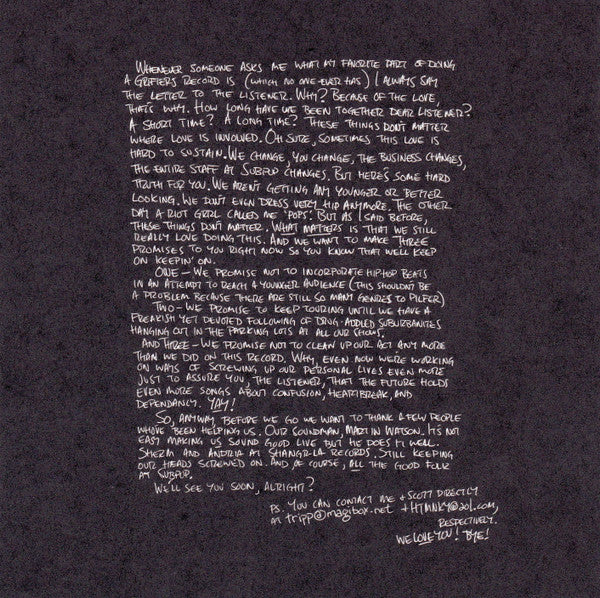 WHENEVER SOMEONE ASKS ME WHAT MY FAVORITE PART OF DOING
A GRIFTERS RECORD IS (WHICH NO ONE EVER HAS) I ALWAYS SAY
THE LETTER TO THE LISTENER. WHY? BECAUSE OF THE LOVE,
THAT'S WHY. HOW LONG HAVE WE BEEN TOGETHER DEAR LISTENER?
A SHORT TIME? A LONG TIME? THESE THINGS DON'T MATTER
WHERE LOVE IS INVOLVED. OH SURE, SOMETIMES THIS LOVE IS
HARD TO SUSTAIN. WE CHANGE, YOU CHANGE, THE BUSINESS CHANGES,
THE ENTIRE STAFF AT SUBPOP CHANGES. BUT HERE'S SOME HARD
TRUTH FOR YOU. WE AREN'T GETTING ANY YOUNGER OR BETTER
LOOKING. WE DON'T EVEN DRESS VERY HIP ANYMORE. THE OTHER
DAY A RIOT GRRL CALLED ME 'POPS'. BUT AS I SAID BEFORE,
THESE THINGS DON'T MATTER. WHAT MATTERS IS THAT WE STILL
REALLY LOVE DOING THIS. AND WE WANT TO MAKE THREE
PROMISES TO YOU RIGHT NOW SO YOU KNOW THAT WE'LL KEEP
ON KEEPIN' ON.
ONE - WE PROMISE NOT TO INCORPORATE HIP HOP BEATS
IN AN ATTEMPT TO REACH A YOUNGER AUDIENCE (THIS SHOULDN'T BE
A PROBLEM BECAUSE THERE ARE STILL SO MANY GENRES TO PILFER)
TWO - WE PROMISE TO KEEP TOURING UNTIL WE HAVE A
FREAKISH YET DEVOTED FOLLOWING OF DRUG-ADDLED SUBURBANITES
HANGING OUT IN THE PARKING LOTS AT ALL OUR SHOWS.
AND THREE - WE PROMISE NOT TO CLEAN UP OUR ACT ANY MORE
THAN WE DID ON THIS RECORD. WHY, EVEN NOW WE'RE WORKING
ON WAYS OF SCREWING UP OUR PERSONAL LIVES EVEN MORE
JUST TO ASSURE YOU, THE LISTENER, THAT THE FUTURE HOLDS
EVEN MORE SONGS ABOUT CONFUSION, HEARTBREAK, AND
DEPENDANCY. YAY!
SO, ANYWAY, BEFORE WE GO WE WANT TO THANK A FEW PEOPLE
WHO'VE BEEN HELPING US. OUR SOUNDMAN, MARTIN WATSON. IT'S NOT
EASY MAKING US SOUND GOOD LIVE BUT HE DOES IT WELL.
SHERM AND ANDRIA AT SHANGRI-LA RECORDS. STILL KEEPING
OUR HEADS SCREWED ON. AND OF COURSE, ALL THE GOOD FOLK
AT SUBPOP.
WE'LL SEE YOU SOON, ALRIGHT?
PS. YOU CAN CONTACT ME + SCOTT DIRECTLY
AT tripp@magibox.net + HTMNKY@aol.com,
RESPECTIVELY.
WE LOVE YOU! BYE!